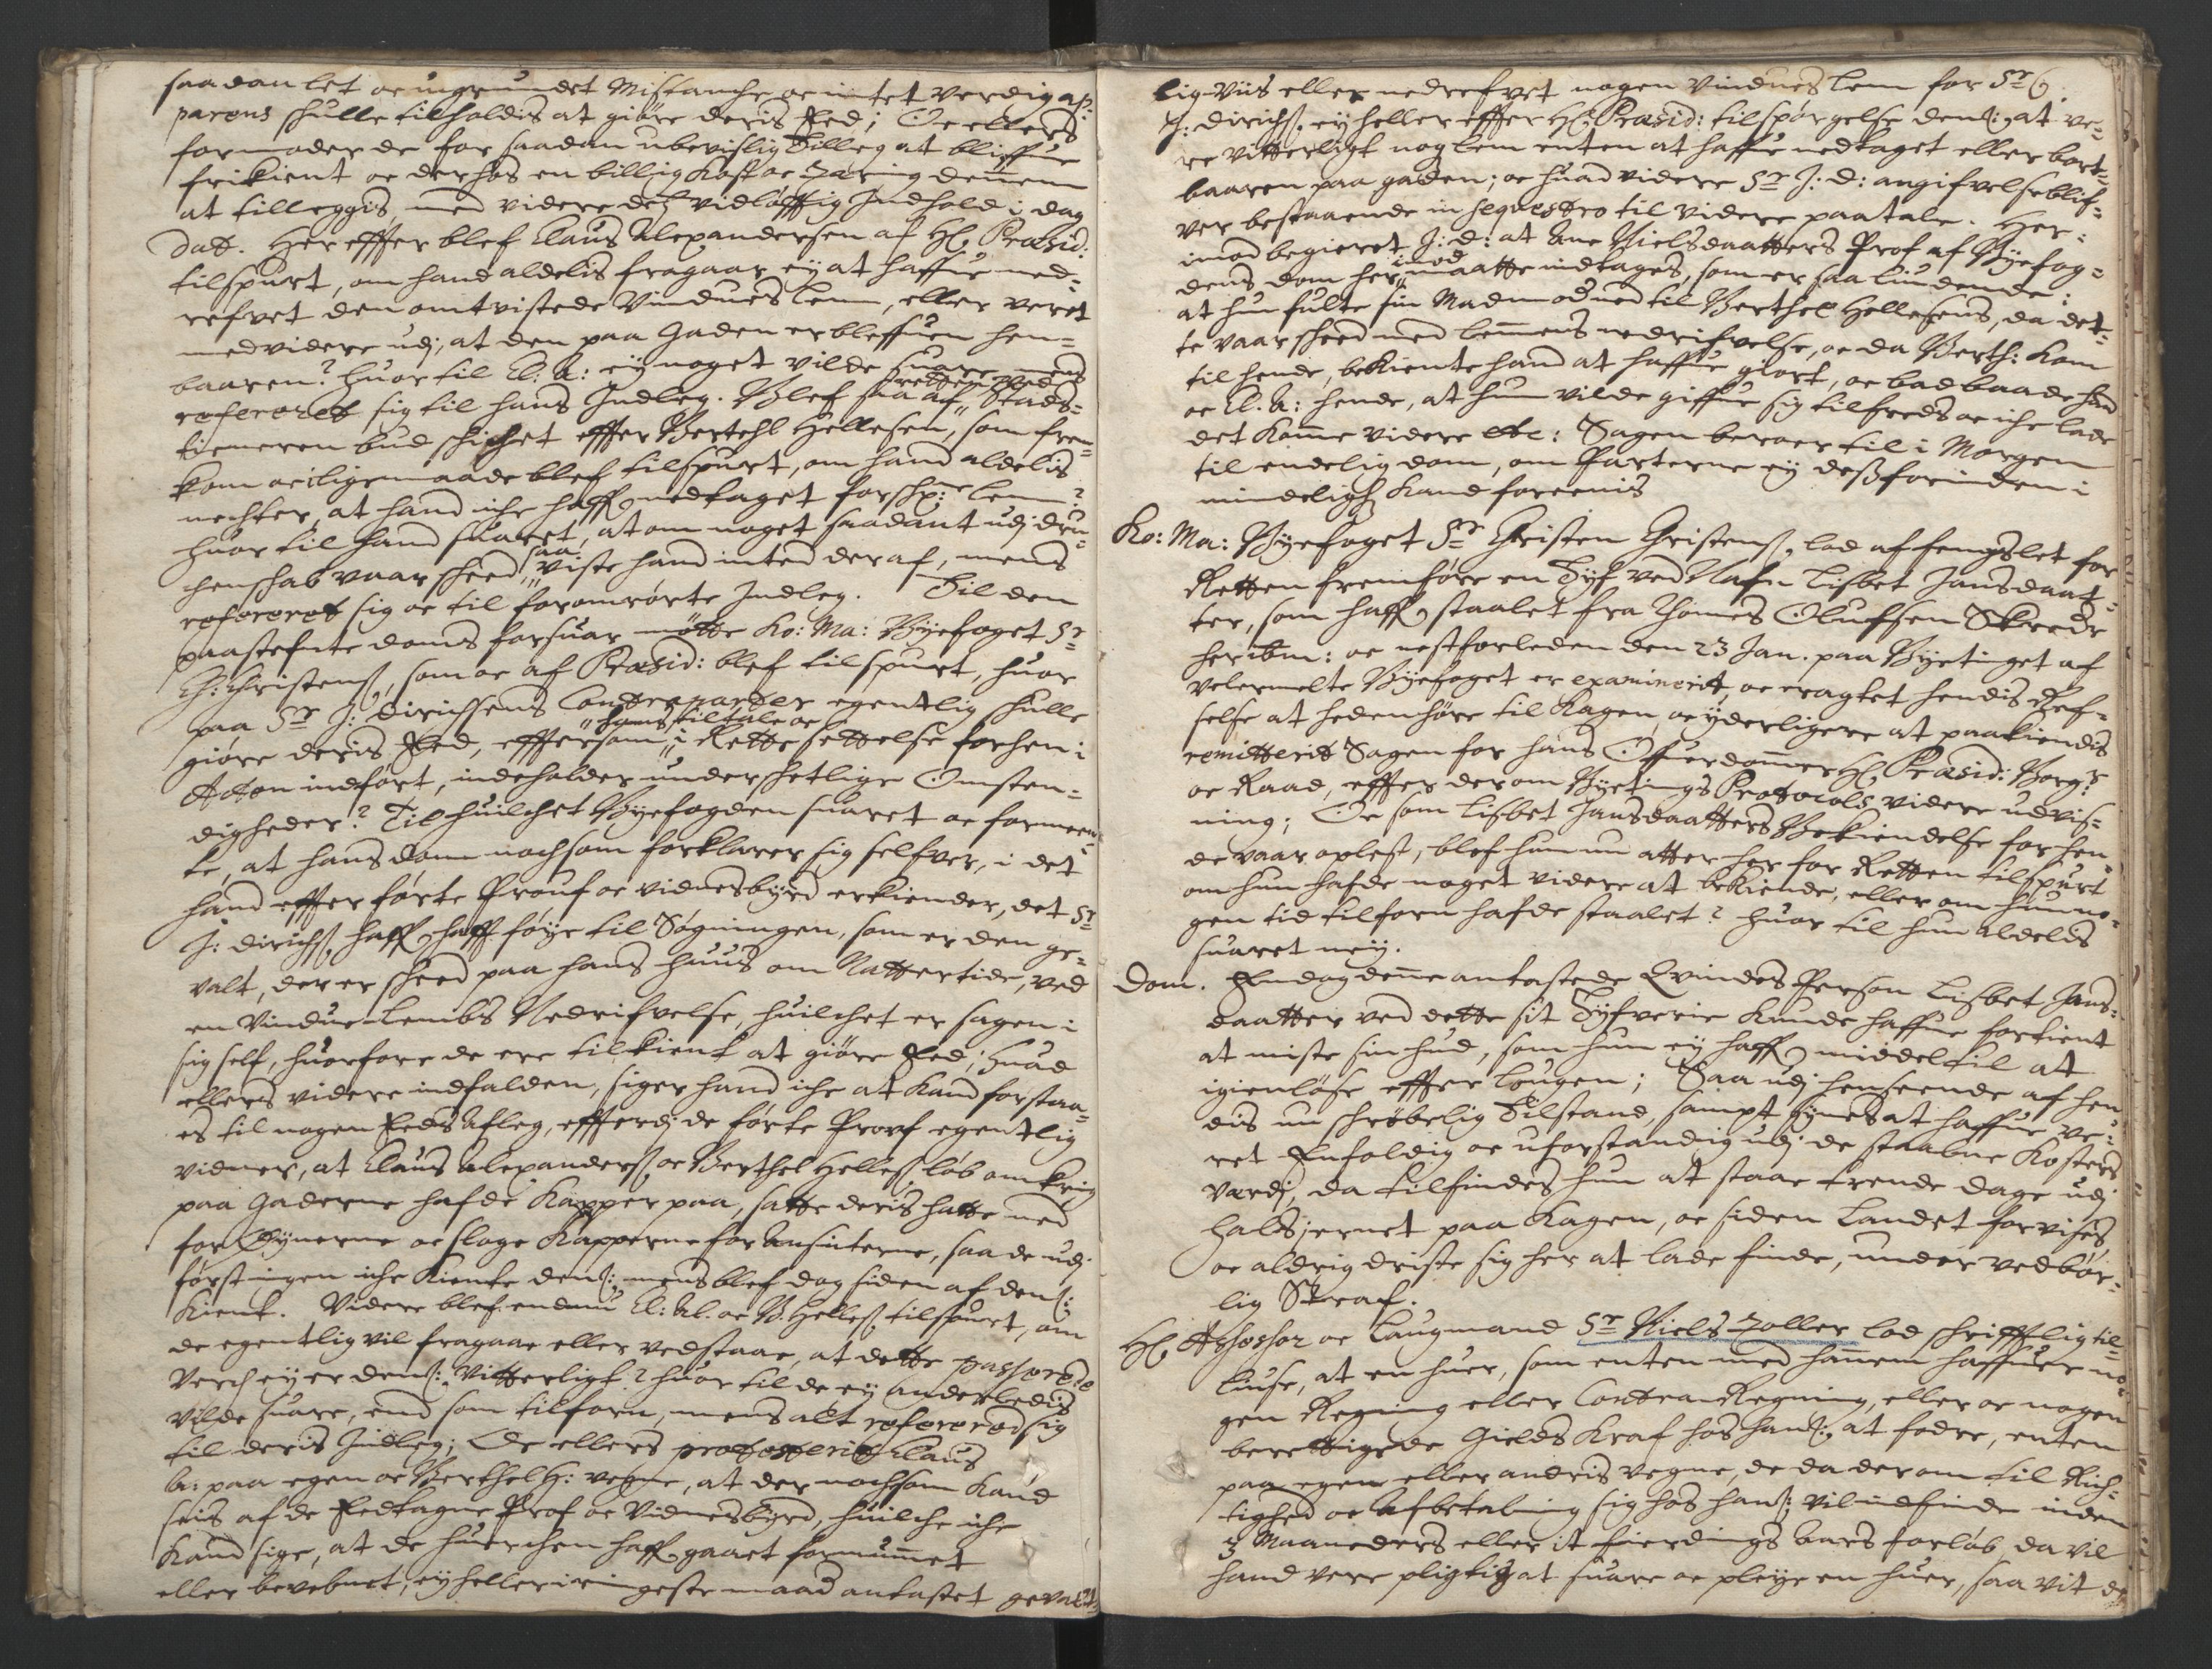 saadan let oc ungrundet Mistanche oc intet verdig ap-
parens skulle tilholdis at giöre deris Eed; Oc ellers
formoder de for saadan ubevislig Tilleg at bliffue
frikient oc derhos en billig Kost oc Tæring dennem
at tilleggis, med videre des vidløfftig Indhold i dag
dat. Her effter blef Claus Alexandersen af Hr. Præsid:
tilspurt, om hand aldelis fragaar ey at haffue ned-
refvet den omtvistede Vindues lem, eller veret
medvidere udj, at den paa Gaden er bleffuen hen-
baaren? huor til Cl: A: ey noget vilde suare mens
refereret sig til hans Indleg. Blef saa af Retten ved Stads-
tieneren bud schichet effter Berthel Hellesen, som frem-
kom oc iligemaade blef tilspurt, om hand aldelis
nechter, at hand iche haffr. nedtaget forschr:ne lem?
huor til hand suaret, at om noget saadant udj dru-
chenschab vaar scheed, saa viste hand inted deraf, mens
refereret sig oc til foromrørte Indleg. Til den
paastefnte doms forsuar mötte Ko: Ma: Byefoget Sr
Ch: Christens., som oc af Præsid: blef tilspurt, huor
paa Sr J: Dirichsens Contraparter egentlig skulle
giöre deris Eed, efftersom hans tiltale oc i Rette settelse forhen i
Acten indfört, indeholder underschetlige Omsten-
digheder? Til huilchet Byefogden suaret oc formeen-
te, at hans dom nochsom forklarer sig selfver, i det
hand effter förte Prouf oc vidnesbyrd erkiender, det Sr
J: Dirichs. haffr. haff. föye til Søgningen, som er den ge-
valt, der er scheed paa hans Huus om Nattertide, ved
en Vindue-lembs Nedrifvelse, huilchet er sagen i
sig self, huorfore de ere tilkient at giöre Eed; huad
ellers videre indfalden, siger hand iche at kand forstaa-
es til nogen Eeds Afleg, effterdj de förte Prof egentlig
vidner, at Claus Alexanders. oc Berthel Helles. løb omkring
paa Gaderne hafde Kapper paa, satte deris hatte ned
for Øynerne oc sloge Kapperne for Ansicterne, saa de udj
förstningen iche kiente dem, mens blef dog siden af dem
kient. Videre blef endnu Cl: Al. oc B: Helles. tilspurt, om
de egentlig vil fragaae eller vedstaae, at dette passerede
Verch ey er dem Vitterligt? huor til de ey anderledis
vilde suare, end som tilforn, mens alt refererede sig
til deris Indleg; Oc ellers protesterit Claus
A: paa egen oc Berthel H: vegne, at der nochsom kand
seis af de Eedtagne Prof oc Vidnesbyrd, huilche iche
kand sige, at de huerchen haffr. gaaet formummet
eller bevebnet, ey heller i ringeste maad antastet gevalt-
lig-viis eller nedrefvet nogen Vindues lem for Sr
J: Dirichs. ey heller effter Hr. Præsid: tilspørgelse dem at ve-
re vitterligt nog lem enten at haffue nedtaget eller bort-
baaren paa gaden; oc huad videre Sr J: D: angifvelse blif-
ver bestaaende in sequestro til videre paatale. Her-
imod begieret J: D: at Ane Nielsdaatters Prof af Byefog-
dens dom her imod maatte indtages, som er saa liudende:
at hun fulte sin Madmoder ned til Berthel Hellesens, da det-
te vaar scheed med lemmens nedrifvelse, oc da Berth: kom
til hende, bekiente hand at haffue giort, oc bad baade hand
oc Cl. A: hende, at hun vilde giffue sig tilfreds oc iche lade
det komme videre etc: Sagen beroer til i Morgen
til endelig dom, om Parterne ey dessforinden i
mindelighed kand foreenis
Ko: Ma: Byefoget Sr Christen Christens. lod af fengslet for
Retten fremföre en Tyf ved Nafn Lisbet Jansdaat-
ter, som haffr. staalet fra Thomes Olufsen Skreder
her ibm: oc nestforleden den 23 Jan. paa Byetinget af
velermelte Byefoget er examinerit, oc eragtet hendis Ref-
selse at hedenhöre til Kagen, oc yderligere at paakiendis
remitterit Sagen for hans Offuerdommer Hr. Præsid: Borgr:
oc Raad, effter derom Byetings Protocols videre udvis-
ning; Oc som Lisbet Jansdaatters Bekiendelse for hen-
de vaar oplest, blef hun nu atter her for Retten tilspurt
om hun hafde noget videre at bekiende, eller om hun no-
gen tid tilforn hafde staalet? huor til hun aldelis
suaret ney.
Dom. Endog denne antastede Qvindes Person Lisbet Jans-
daatter ved dette sit Tyfverie kunde haffue fortient
at miste sin hud, som hun ey haffr. middel til at
igienløse effter Lougen; Saa udj henseende af hen-
dis nu schröbelig Tilstand, sampt synes at haffue ve-
ret Enfoldig oc uforstandig udj de staalne Kosters
værdj, da tilfindes hun at staae trende dage udj
halsjernet paa Kagen, oc siden Landet forvises
oc aldrig driste sig her at lade finde, under vedbør-
lig Straf.
Hr. Assessor oc Laugmand Sr Niels Toller lod schrifftlig til-
liuse, at en huer, som enten med hannem haffuer no-
gen Regning eller Contra Regning, eller oc nogen
berettigede Gields Kraf hos ham at fodre, enten
paa egen eller andris vegne, de da derom til Rich-
tighed oc Afbetaling sig hos ham vil indfinde inden
3 Maaneders eller it fierdings Aars forløb, da vil
hand vere pligtig at suare oc pleye en huer, saa vit de